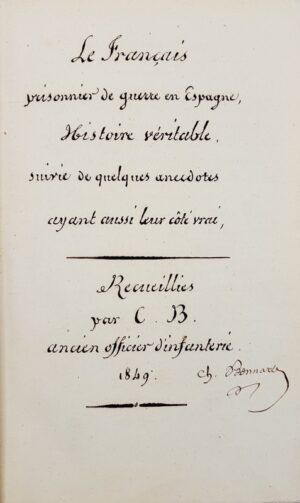 Le Français
prisonnier de guerre en Espagne,
Histoire véritable,
suivie de quelques anecdotes
ayant aussi leur côté vrai,
Recueillies
par C. B.
ancien officier d'infanterie.
1849.
Ch.